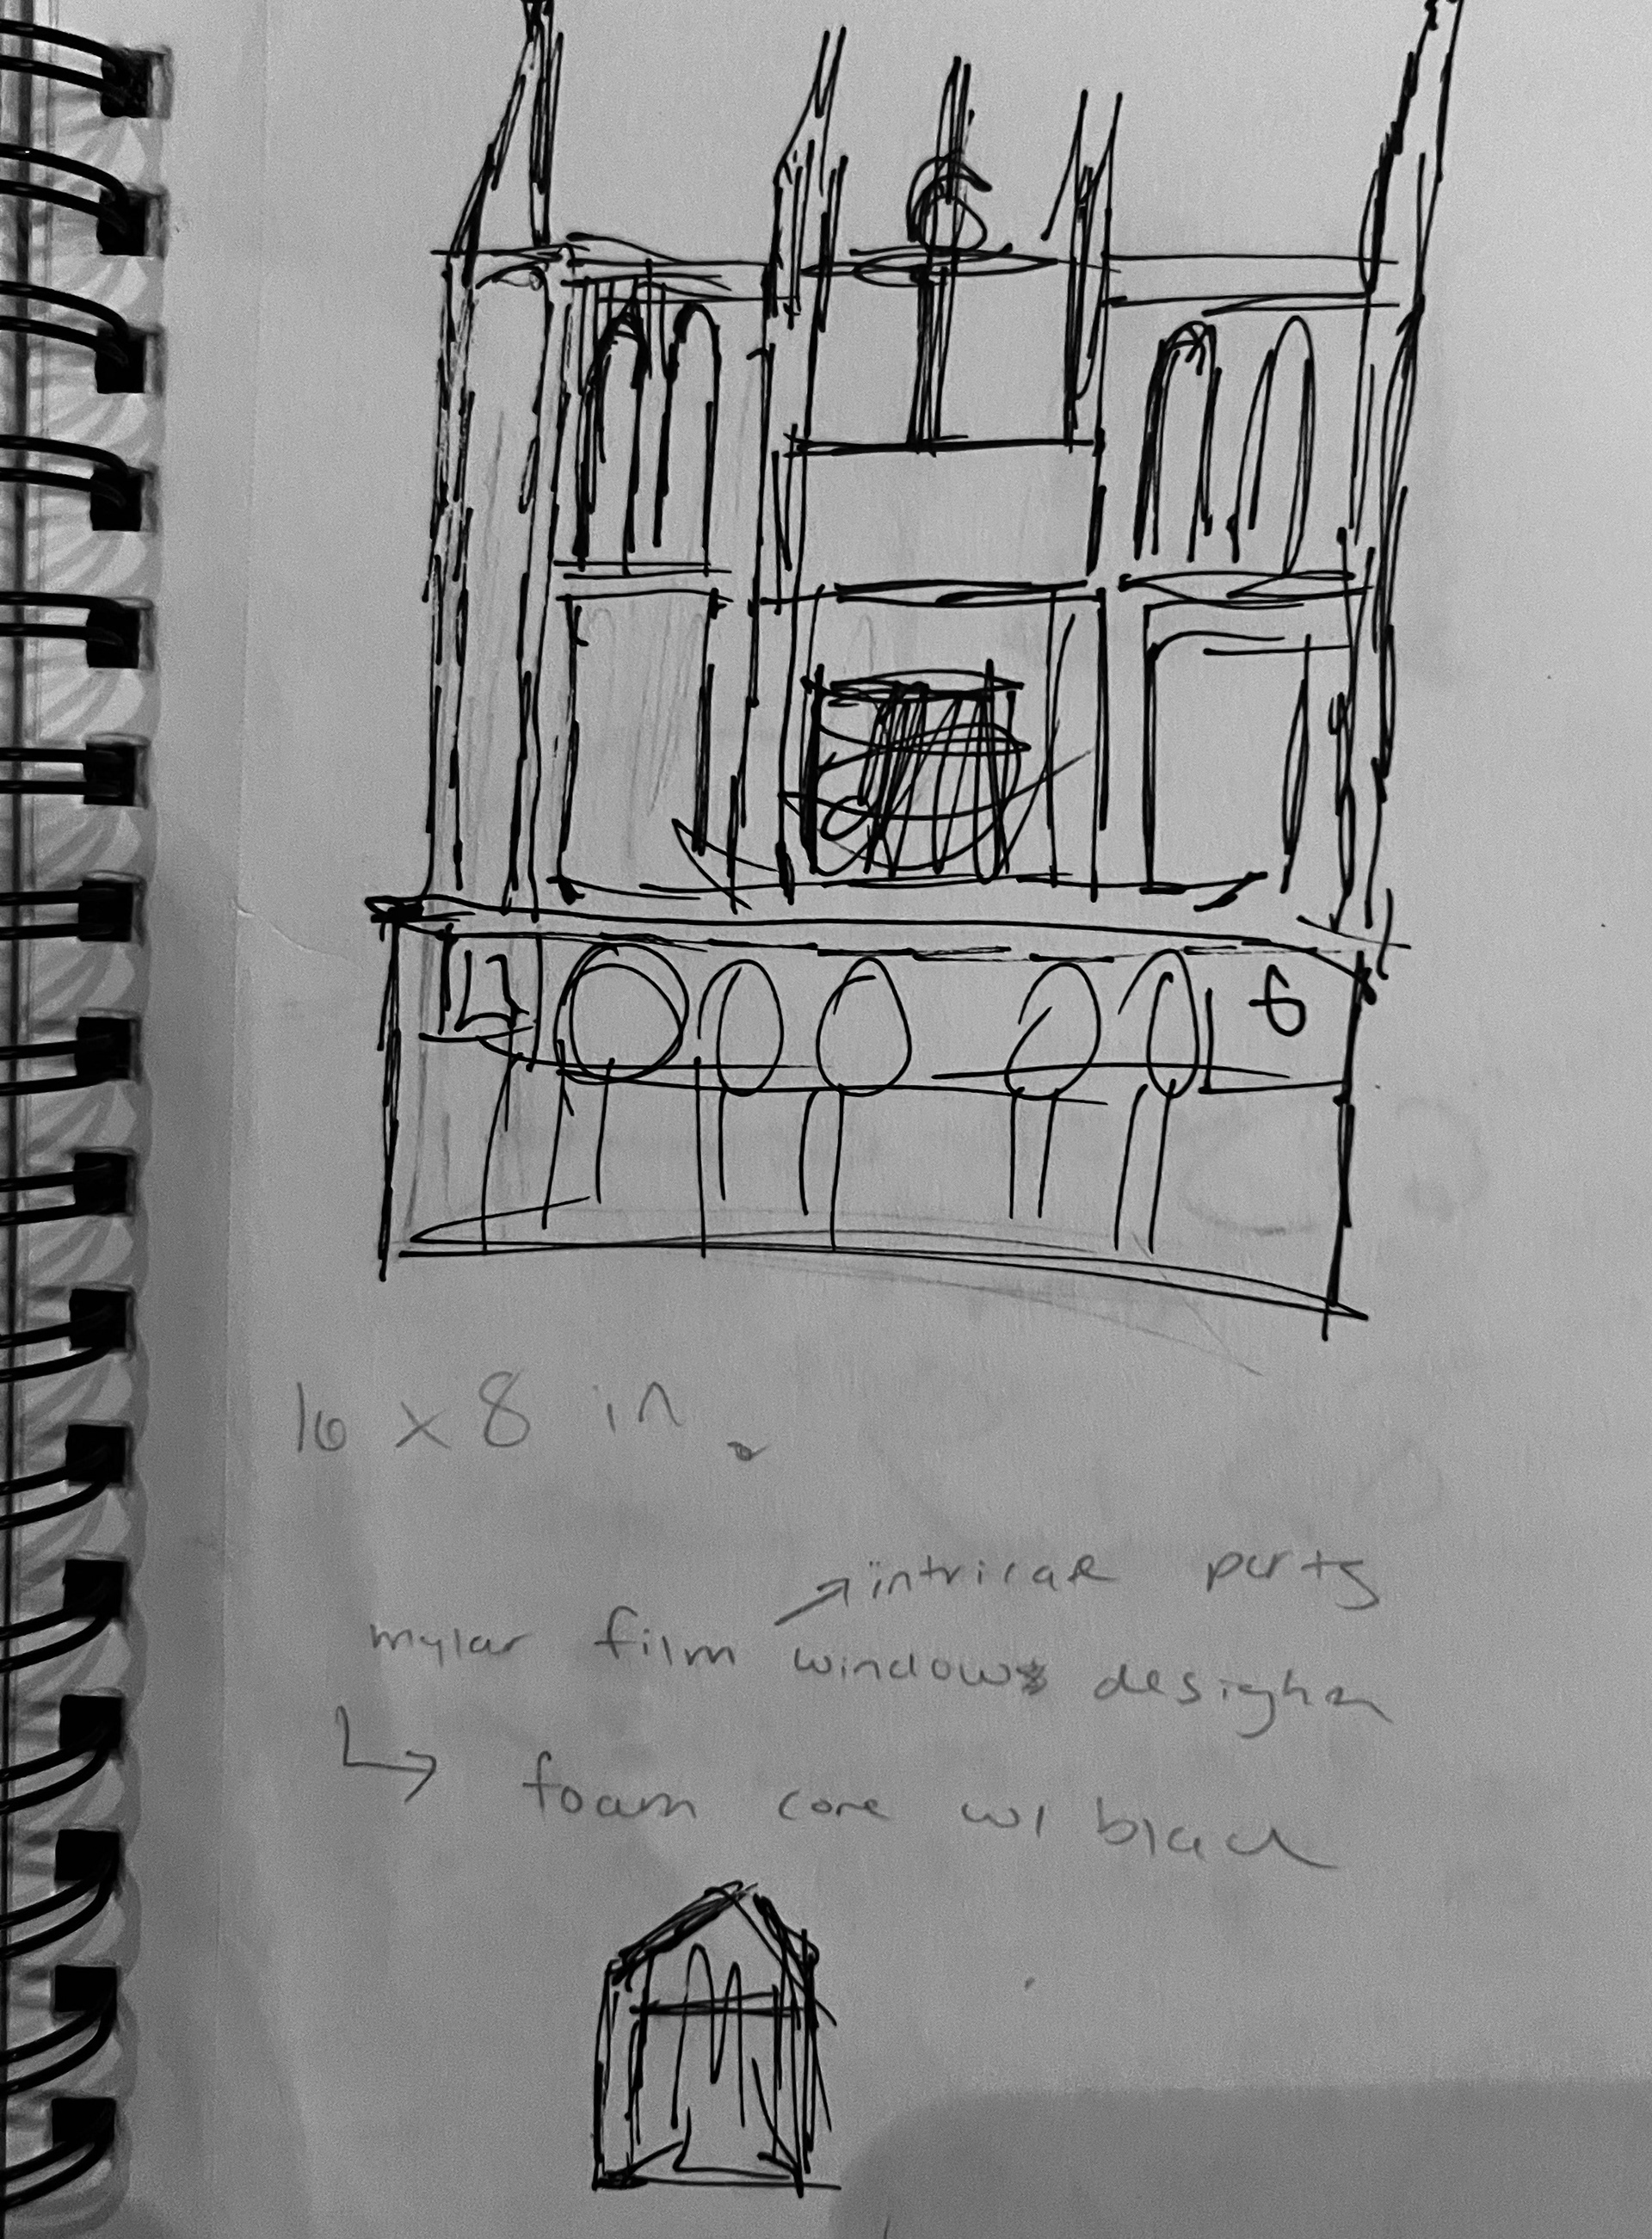 16 x 8 in.
intricae parts
mylar film windows design
foam core w/ black